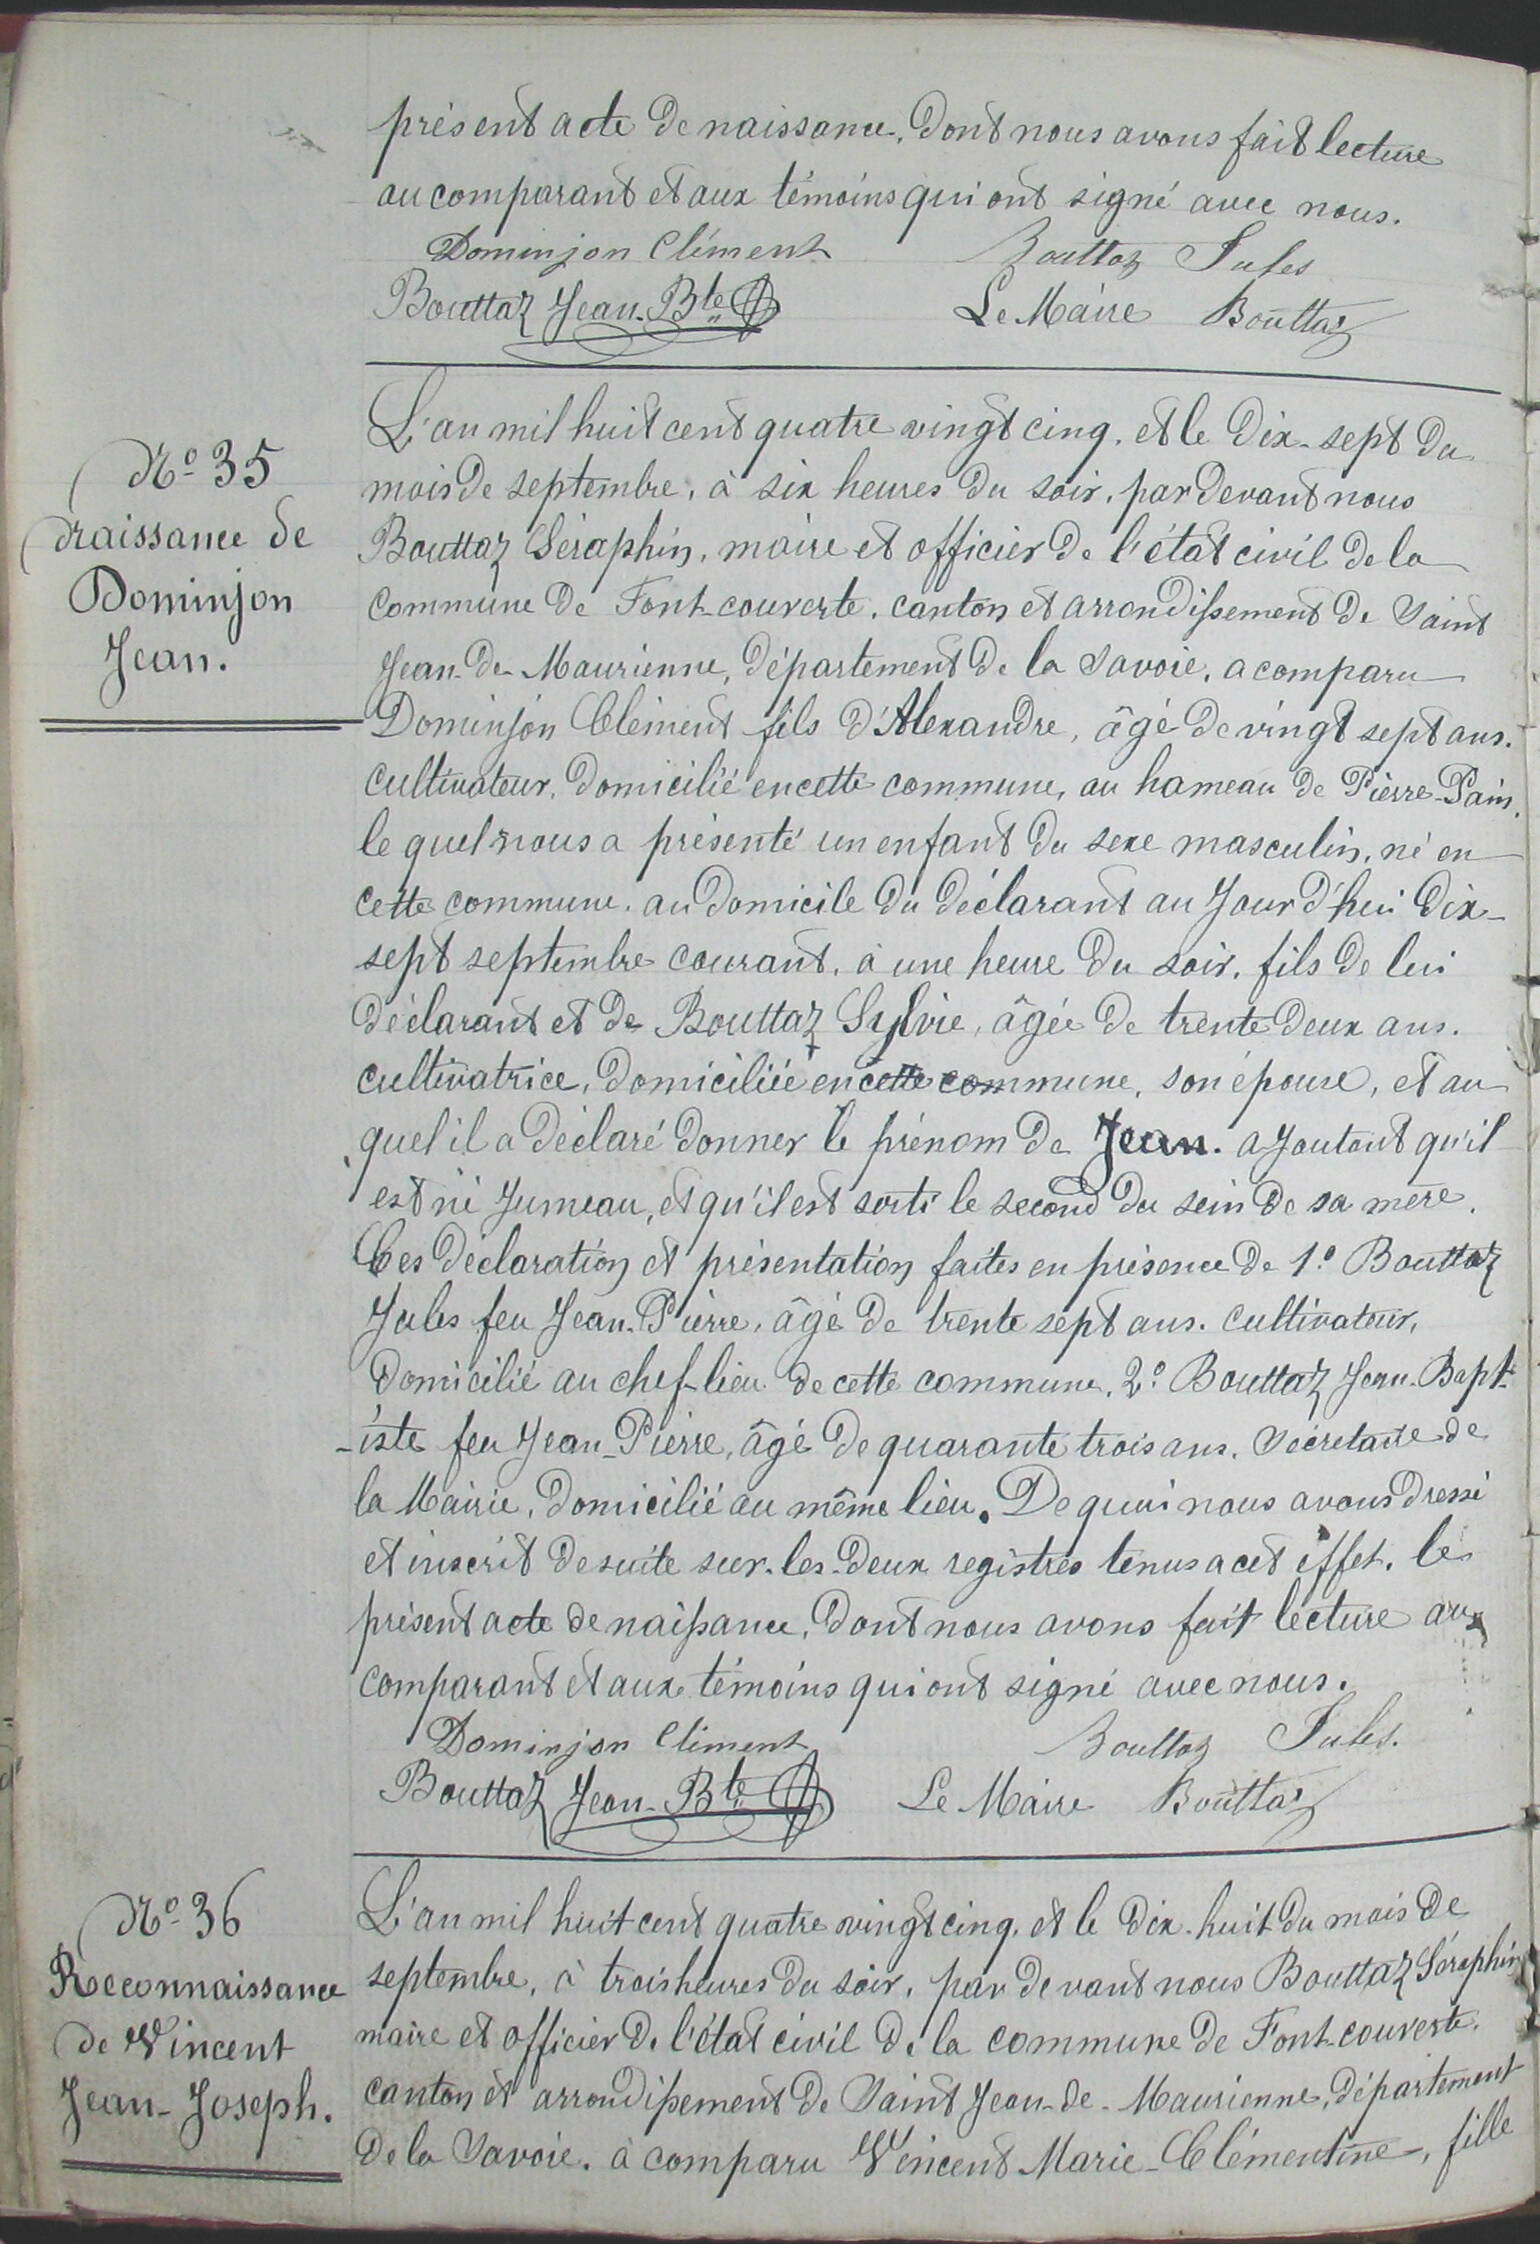 présent acte de naissance, dont nous avons fait lecture
au comparant et aux témoins qui ont signé avec nous.
Dominjon Clément Bouttaz Jules
Bouttaz Jean-Bte Le Maire Bouttaz
N° 35
Naissance de
Dominjon
Jean.
L'an mil huit cent quatre vingt cinq, et le dix-sept du
mois de septembre, à six heures du soir, par devant nous
Bouttaz Séraphin, maire et officier de l'état civil de la
commune de Font-couverte, canton et arrondissement de Saint
Jean-de-Maurienne, département de la Savoie, a comparu
Dominjon Clément fils d'Alexandre, âgé de vingt sept ans.
cultivateur, domicilié en cette commune, au hameau de Pierre-Pain,
le quel nous a présenté un enfant du sexe masculin, né en
cette commune, au domicile du déclarant au jour d'hui dix-
sept septembre courant, à une heure du soir, fils de lui
déclarant et de Bouttaz Sylvie, âgée de trente deux ans.
cultivatrice, domiciliée en cette commune, son épouse, et au
quel il a déclaré donner le prénom de Jean. ajoutant qu'il
est né jumeau, et qu'il est sorti le second du sein de sa mère.
Ces déclaration et présentation faites en présence de 1° Bouttaz
Jules feu Jean-Pierre, âgé de trente sept ans. cultivateur,
domicilié au chef-lieu de cette commune, 2° Bouttaz Jean-Bapt-
-iste feu Jean-Pierre, âgé de quarante trois ans. Sécretaire de
la Mairie, domicilié au même lieu. De quoi nous avons dressé
et inscrit de suite sur-les-deux registres tenus a cet éffet, le
présent acte de naissance, dont nous avons fait lecture au
comparant et aux témoins qui ont signé avec nous.
Dominjon Clément Bouttaz Jules.
Bouttaz Jean-Bte Le Maire Bouttaz
N° 36
Reconnaissance
de Vincent
Jean-Joseph.
L'an mil huit cent quatre vingt cinq, et le dix-huit du mois de
septembre, à trois heures du soir, par devant nous Bouttaz Séraphin
maire et officier de l'état civil de la commune de Font-couverte,
canton et arrondissement de Saint Jean-de-Maurienne, département
de la Savoie, à comparu Vincent Marie-Clémentine, fille